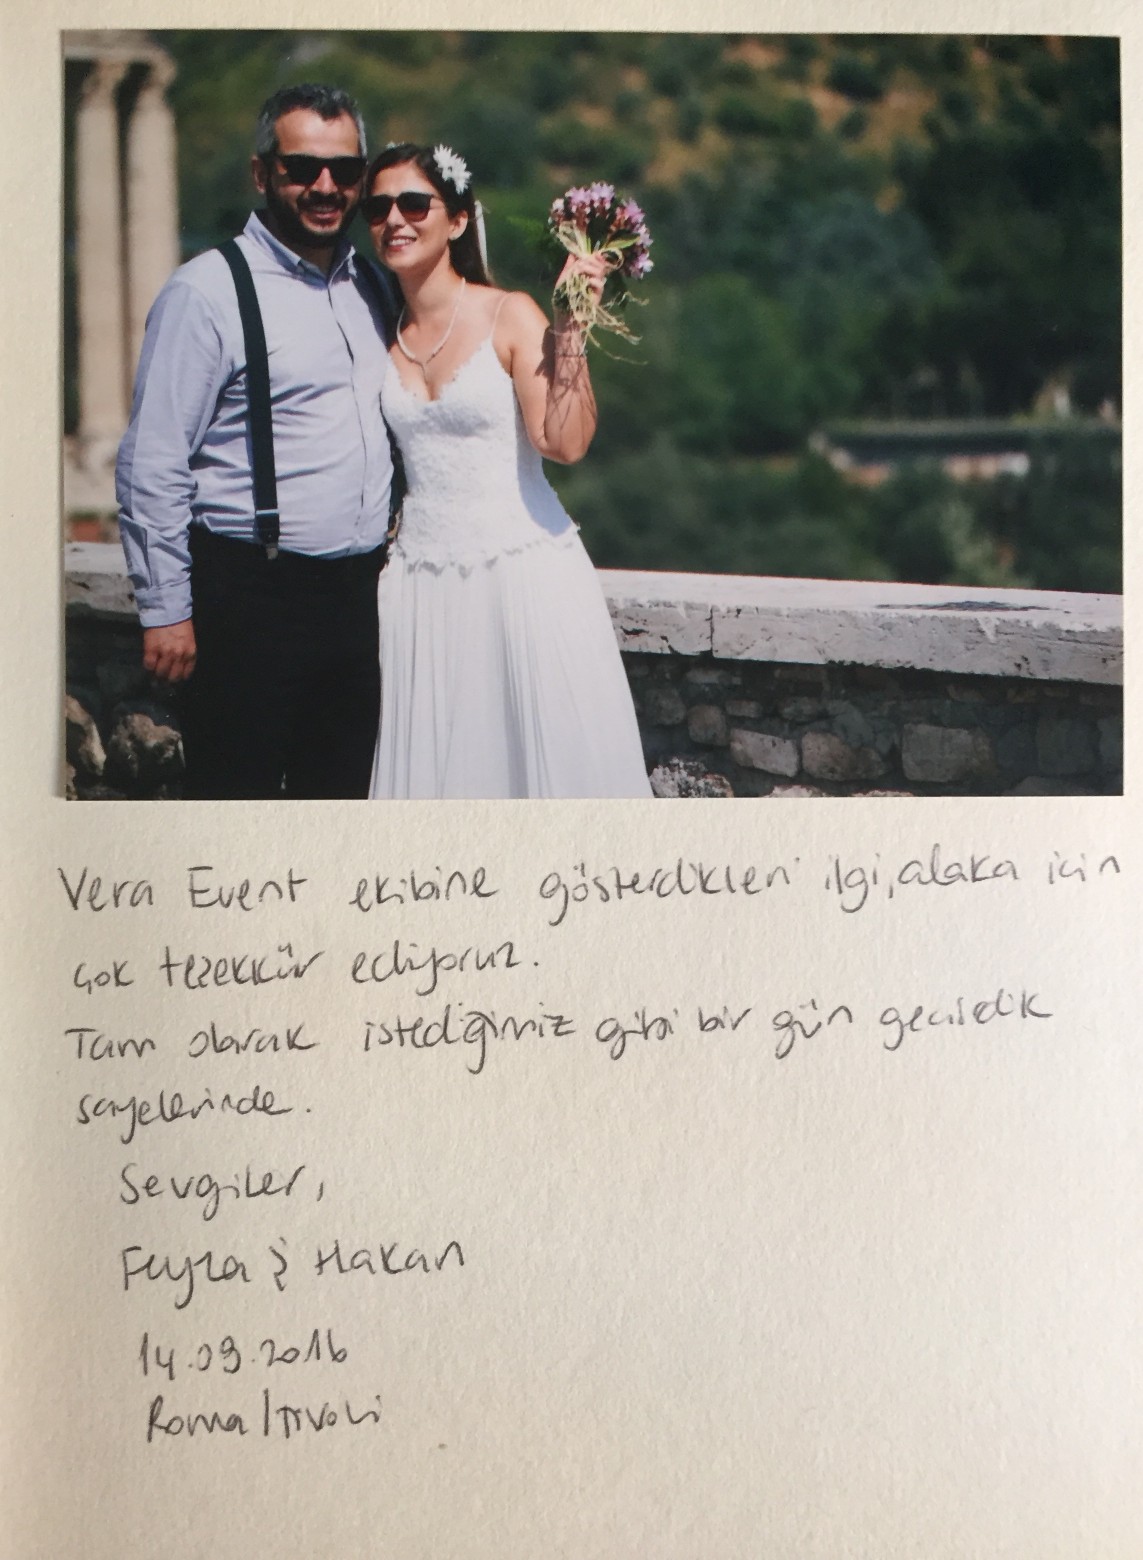 Vera Event ekibine gösterdikleri ilgi, alaka için
çok teşekkür ediyoruz.
Tam olarak istediğimiz gibi bir gün geçirdik
sayelerinde.
Sevgiler,
Feyza & Hakan
14.09.2016
Roma/Tivoli